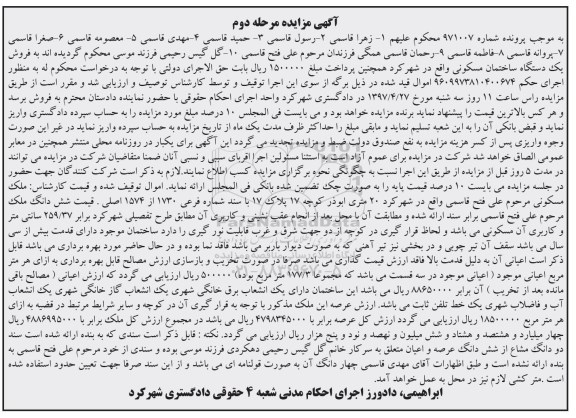 آگهی مزایده مرحله دوم
به موجب پرونده شماره ۹۷۱۰۰۷ محکوم علیهم ۱- زهرا قاسمی ۲-رسول قاسمی ۳- حمید قاسمی ۴-مهدی قاسمی ۵- معصومه قاسمی ۶-صغرا قاسمی
۷-پروانه قاسمی ۸-فاطمه قاسمی ۹-رحمان قاسمی همگی فرزندان مرحوم علی فتح قاسمی ۱۰-گل گیس رحیمی فرزند موسی محکوم گردیده اند به فروش
یک دستگاه ساختمان مسکونی واقع در شهرکرد همچنین پرداخت مبلغ ۱۵۰۰۰۰۰ ریال بابت حق الاجرای دولتی با توجه به درخواست محکوم له به منظور
اجرای حکم ۹۶۰۹۹۷۳۸۱۰۴۰۰۶۷۴ اموال قید شده در ذیل برگه از سوی این اجرا توقیف و توسط کارشناس توصیف و ارزیابی شد و مقرر است از طریق
مزایده راس ساعت ۱۱ روز سه شنبه مورخ ۱۳۹۷/۴/۲۷ در دادگستری شهرکرد واحد اجرای احکام حقوقی با حضور نماینده دادستان محترم به فروش برسد
و هر کس بالاترین قیمت را پیشنهاد نماید برنده مزایده خواهد بود و می بایست فی المجلس ۱۰ درصد مبلغ مورد مزایده را به حساب سپرده دادگستری واریز
نماید و قبض بانکی آن را به این شعبه تسلیم نماید و مابقی مبلغ را حداکثر ظرف مدت یک ماه از تاریخ مزایده به حساب سپرده واریز نماید در غیر این صورت
وجوه واریزی پس از کسر هزینه مزایده به نفع صندوق دولت ضبط و مزایده تجدید می گردد این آگهی برای یکبار در روزنامه محلی منتشر همچنین در معابر
عمومی الصاق خواهد شد شرکت در مزایده برای عموم آزاد است به استثنا مسئولین اجرا اقربای سببی و نسبی آنان ضمنا متقاضیان شرکت در مزایده می توانند
در مدت ۵ روز قبل از مزایده از طریق این اجرا نسبت به چگونگی نحوه برگزاری مزایده کسب اطلاع نمایند.لازم به ذکر است شرکت کنندگان جهت حضور
در جلسه مزایده می بایست ۱۰ درصد قیمت پایه را به صورت چک تضمین شده بانکی فی المجلس ارائه نماید. اموال توقیف شده و قیمت کارشناس: ملک
مسکونی مرحوم علی فتح قاسمی واقع در شهرکرد ۲۰ متری ابوذر کوچه ۱۷ پلاک ۱۷ با سند شماره فرعی ۱۷۳۰ از ۱۵۷۴ اصلی . قیمت شش دانگ ملک
مرحوم علی فتح قاسمی برابر سند ارائه شده و مطابقت آن با محل بعد از انجام عقب نشینی و کاربری آن مطابق طرح تفصیلی شهرکرد برابر ۲۵۹/۳۷ سانتی متر
و کاربری آن مسکونی می باشد و لحاظ قرار گیری در کوچه از دو جهت شرق و غرب قابلیت نور گیری را دارد ساختمان موجود دارای قدمت بیش از سی
سال می باشد سقف آن تیر چوبی و در بخشی نیز تیر آهنی که به صورت دیوار باربر می باشد فاقد نما بوده و در حال حاضر مورد بهره برداری می باشد قابل
ذکر است اعیانی آن به دلیل قدمت بالا فاقد ارزش قیمت گذاری می باشد صرفا در صورت تخریب و بازسازی ارزش مصالح قابل بهره برداری به ازای هر متر
مربع اعیانی موجود ( اعیانی موجود در سه قسمت می باشد که مجموعا ۱۷۷/۳ متر مربع بوده) ۵۰۰۰۰۰ ریال ارزیابی می گردد که ارزش اعیانی ( مصالح باقی
مانده بعد از تخریب ) آن برابر ۸۸۶۵۰۰۰۰ ریال می باشد این ساختمان دارای یک انشعاب برق خانگی شهری یک انشعاب گاز خانگی شهری یک انشعاب
آب و فاضلاب شهری یک خط تلفن ثابت می باشد. ارزش عرصه این ملک مذکور با توجه به قرار گیری آن در کوچه و سایر شرایط مرتبط در قضیه به ازای
هر متر مربع ۱۸۵۰۰۰۰۰ ریال ارزیابی می گردد ارزش کل عرصه برابر با ۴۷۹۸۳۴۵۰۰۰ ریال می باشد در مجموع ارزش کل ملک برابر با ۴۸۸۶۹۹۵۰۰۰
چهار میلیارد و هشتصد و هشتاد و شش میلیون و نهصد و نود و پنج هزار ریال ارزیابی می گردد. نکته : قابل ذکر است سندی که به بنده ارائه شده است سند
دو دانگ مشاع از شش دانگ عرصه و اعیان متعلق به سرکار خانم گل گیس رحیمی دهکردی فرزند موسی بوده و سندی از خود مرحوم علی فتح قاسمی به
بنده ارائه نشده است و طبق اظهارات آقای مهدی قاسمی چهار دانگ آن به صورت قولنامه ای می باشد و از این سند صرفا جهت تعیین حدود استفاده شده
است .متر کشی لازم نیز در محل به عمل خواهد آمد.
ابراهیمی، دادورز اجرای احکام مدنی شعبه ۴ حقوقی دادگستری شهرکرد